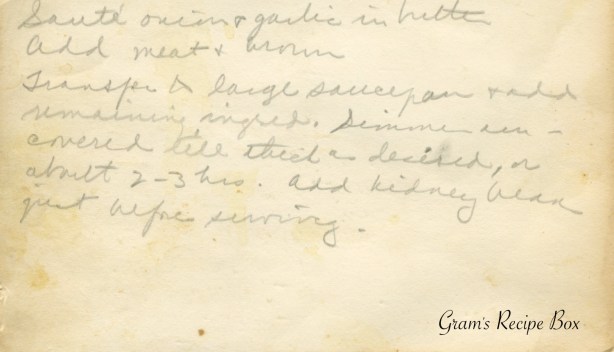 Sauté onion & garlic in butter
Add meat & brown
Transfer to large saucepan & add
remaining ingred. Simmer un-
covered till thick as desired, or
about 2-3 hrs. Add kidney beans
just before serving.
Gram's Recipe Box